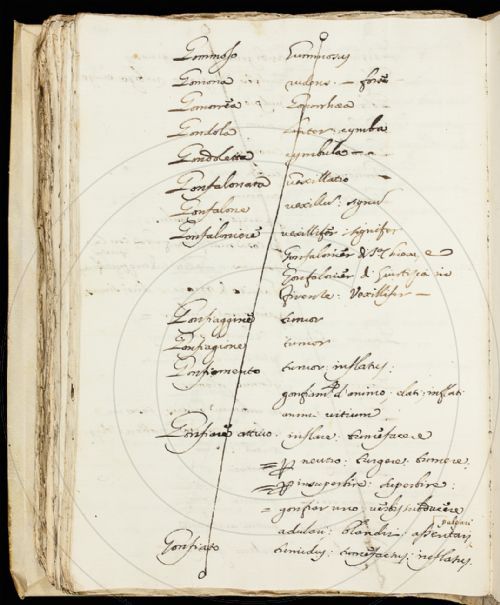 Gommoso gummosus
Gomona rudens — fors
Gomorrea Gonorrhœa
Gondola linter cymba
Gondoletta cymbula
Gonfalonata vexillatio
Gonfalone vexillu: signu
Gonfaloniere vexillifer: signifer
Gonfaloniere di Sta Chiesa, e
Gonfaloniere di Giustizia in
Firenze: Vexillifer —
Gonfiaggine tumor
Gonfiagione tumor
Gonfiamento tumor: inflatus:
gonfiam.to d'animo. elati: inflati
animi vitium
Gonfiare attivo. inflare. tumefacere
= neutro: turgere: tumere:
= insuperbire: superbire:
= gonfiar uno: verbis
adulari: blandiri: assentari
Gonfiato tumidus: tumefactus: inflatus: